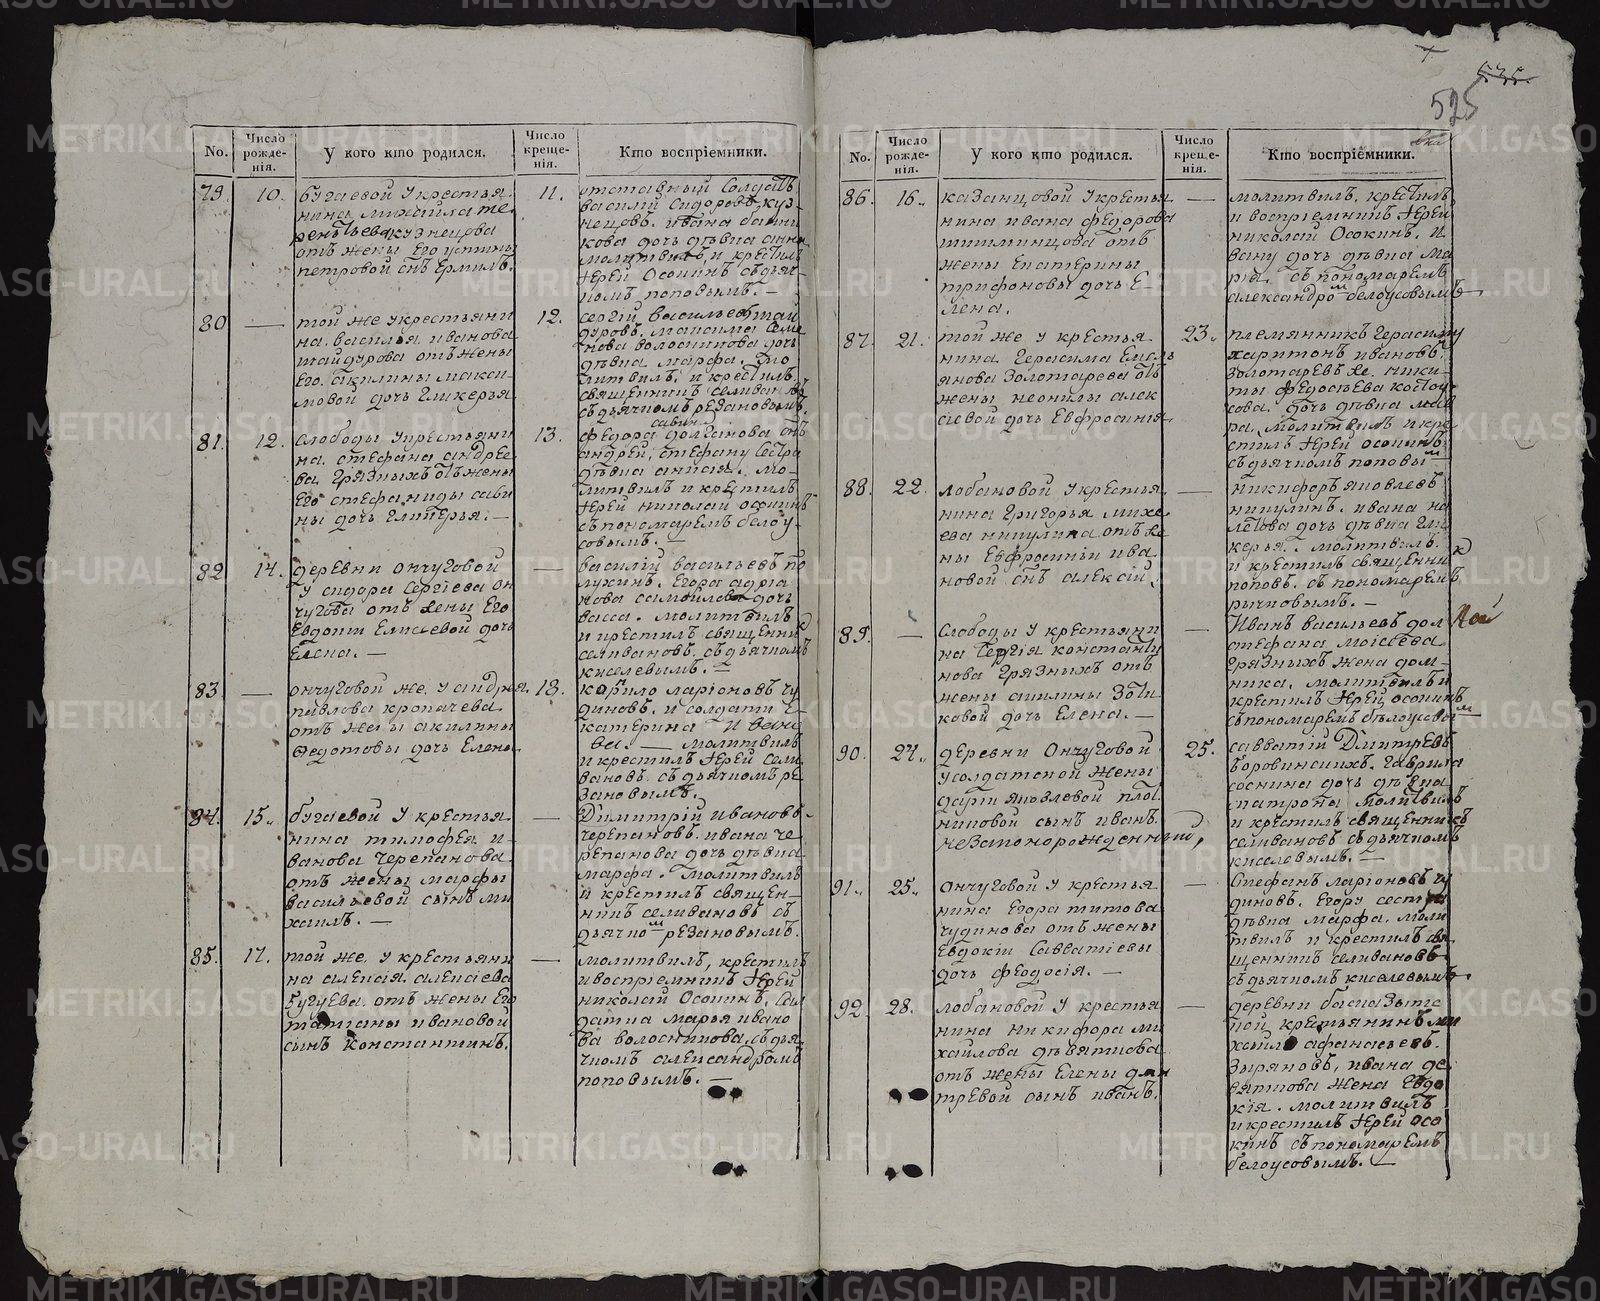 525
No.
Число рожде-нія.
У кого кто родился.
Число креще-нія.
Кто воспріемники.
79.
10.
бугаевой у крестья
нина михаила те
рентьева кузнецова
отъ жены его устины
петровой снъ Ермилъ.
11.
отставный солдатъ
василий сидоровъ куз
нецовъ. ивана
кова дочь дѣвка анна
молитвилъ, и крестилъ
Іерей Осокинъ съ дьяч
комъ поповымъ. —
80
—
той же у крестьяни
на василья иванова
шайдурова отъ жены
его акилины макси
мовой дочь гликерья.
12.
сергій васильевъ шай
дуровъ. максима семе
нова волосникова дочь
дѣвка марфа. мо
литвилъ, и крестилъ
священникъ селивановъ
съ дьячкомъ резановымъ.
81.
12.
слободы у крестьяни
на стефана андрее
ва грязныхъ отъ жены
его стефаниды сави
ны дочь гликерья. —
13.
савин
федора долганова снъ
андрей, стефану сестра
дѣвка анисья. мо-
литвилъ и крестилъ
Іерей николай осокинъ
съ пономаремъ белоу-
совымъ. —
82
14.
деревни ончуговой
у сидора Сергіева он
чугова отъ жены его
Евдокіи Елисѣевой дочь
Елена. —
—
василій васильевъ по
лухинъ. Егора адріа
нова самойлова дочь
васса. молитвилъ
и крестилъ священник
селивановъ. съ дьячкомъ
киселевымъ. —
83
—
ончуговой же. у андрея
павлова кропачева
отъ жены акилины
федотовы дочь Елена.
18.
корнило ларіоновъ чу
диновъ. и солдатка е
катерина ивано
ва. — молитвилъ
и крестилъ Іерей сели
вановъ. съ дьячкомъ ре
зановымъ.
84.
15.
бугаевой у крестья
нина тимофея и-
ванова черепанова
отъ жены марфы
васильевой сынъ ми
хаилъ. —
—
Димитрій ивановъ
черепановъ. ивана че
репанова дочь дѣвка
марфа. молитвилъ
и крестилъ священ-
никъ селивановъ съ
дьячкомъ резановымъ.
85.
17.
той же. у крестьяни
на алексія алексіева
гугуева. отъ жены его
татіаны ивановой
сынъ константинъ.
—
молитвилъ, крестилъ
и воспріемникъ Іерей
николай Осокинъ, сол
датка марья ивано
ва волосникова. съ дья
чкомъ александромъ
поповымъ. —
No.
Число рожде-нія.
У кого кто родился.
Число креще-нія.
Кто воспріемники.
86.
16.
казанцовой у крестья
нина ивана федорова
шишминцова отъ
жены Екатерины
трифоновы дочь Е-
лена.
—
молитвилъ. крестилъ
и воспріемникъ Іерей
николай Осокинъ. и
вану дочь дѣвка ма
рья. съ пономаремъ
александромъ белоусовымъ
87.
21.
той же у крестья
нина герасима Емель
янова золотарева отъ
жены неонилы алек
сіевой дочь Евфросинія.
23.
племянникъ герасиму
харитонъ ивановъ
золотаревъ же. ники
ты федосьева костоу
сова дочь дѣвка мав
ра. молитвилъ и кре
стилъ Іерей осокинъ
съ дьячкомъ поповым
88.
22.
лобановой у крестья
нина григорья михе
ева никулина отъ же
ны Евфросиніи ива
новой снъ алексій.
—
никифоръ яковлевъ
никулинъ. ивана
дочь дѣвка гли
керья. молитвилъ
и крестилъ священник
поповъ. съ пономаремъ
рычковымъ. —
89.
—
слободы у крестьяни
на сергія константи
нова грязныхъ отъ
жены акилины зоти
ковой дочь Елена. —
—
Иванъ васильевъ дол
стефана моисеева
грязныхъ жена дом-
ника. молитвилъ и
крестилъ Іерей осокинъ
съ пономаремъ бѣлоусовым
90.
24.
деревни Ончуговой
у солдатской жены
дарьи яковлевой плот
никовой сынъ иванъ.
незаконорожденный,
25.
савватій Димитревъ
боровинскихъ. гаврила
соснина дочь дѣвка
матрона молитвилъ
и крестилъ священникъ
селивановъ съ дьячкомъ
киселевымъ. —
91.
25.
ончуговой у крестья
нина Егора титова
чудинова отъ жены
Евдокіи Савватіевы
дочь феодосія. —
—
стефанъ ларіоновъ чу
диновъ. Егору сестра
дѣвка марфа. моли
твилъ и крестилъ свя
щенникъ селивановъ
съ дьячкомъ киселевымъ.
92.
28.
лобановой у крестья
нина никифора ми
хайлова дѣвяткова
отъ жены Елены дми
тревой сынъ иванъ.
—
деревни
крестьянинъ ми
хайло афанасьевъ
зыряновъ, ивана де
вяткова жена Евдо
кія. молитвилъ
и крестилъ Іерей осо
кинъ съ пономаремъ
белоусовымъ. —
METRIKI.GASO-URAL.RU